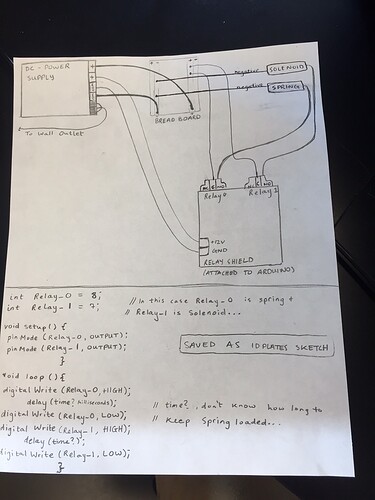 DC - POWER
SUPPLY
To Wall Outlet
BREAD BOARD
negative
SOLENOID
negative
SPRING
Relay 0
Relay 1
+12V
GND
RELAY SHIELD
(ATTACHED TO ARDUINO)
int Relay_0 = 8;
int Relay_1 = 7;
// In this case Relay_0 is spring +
// Relay_1 is Solenoid...
void setup() {
pinMode (Relay_0, OUTPUT);
pinMode (Relay_1, OUTPUT);
}
SAVED AS 1DPLATES SKETCH
void loop () {
digital Write (Relay_0, HIGH);
delay (time? milliseconds);
digital Write (Relay_0, LOW);
digital Write (Relay_1, HIGH);
delay (time?);
digital Write (Relay_1, LOW);
}
// time?, I don't know how long to
// keep Spring loaded...